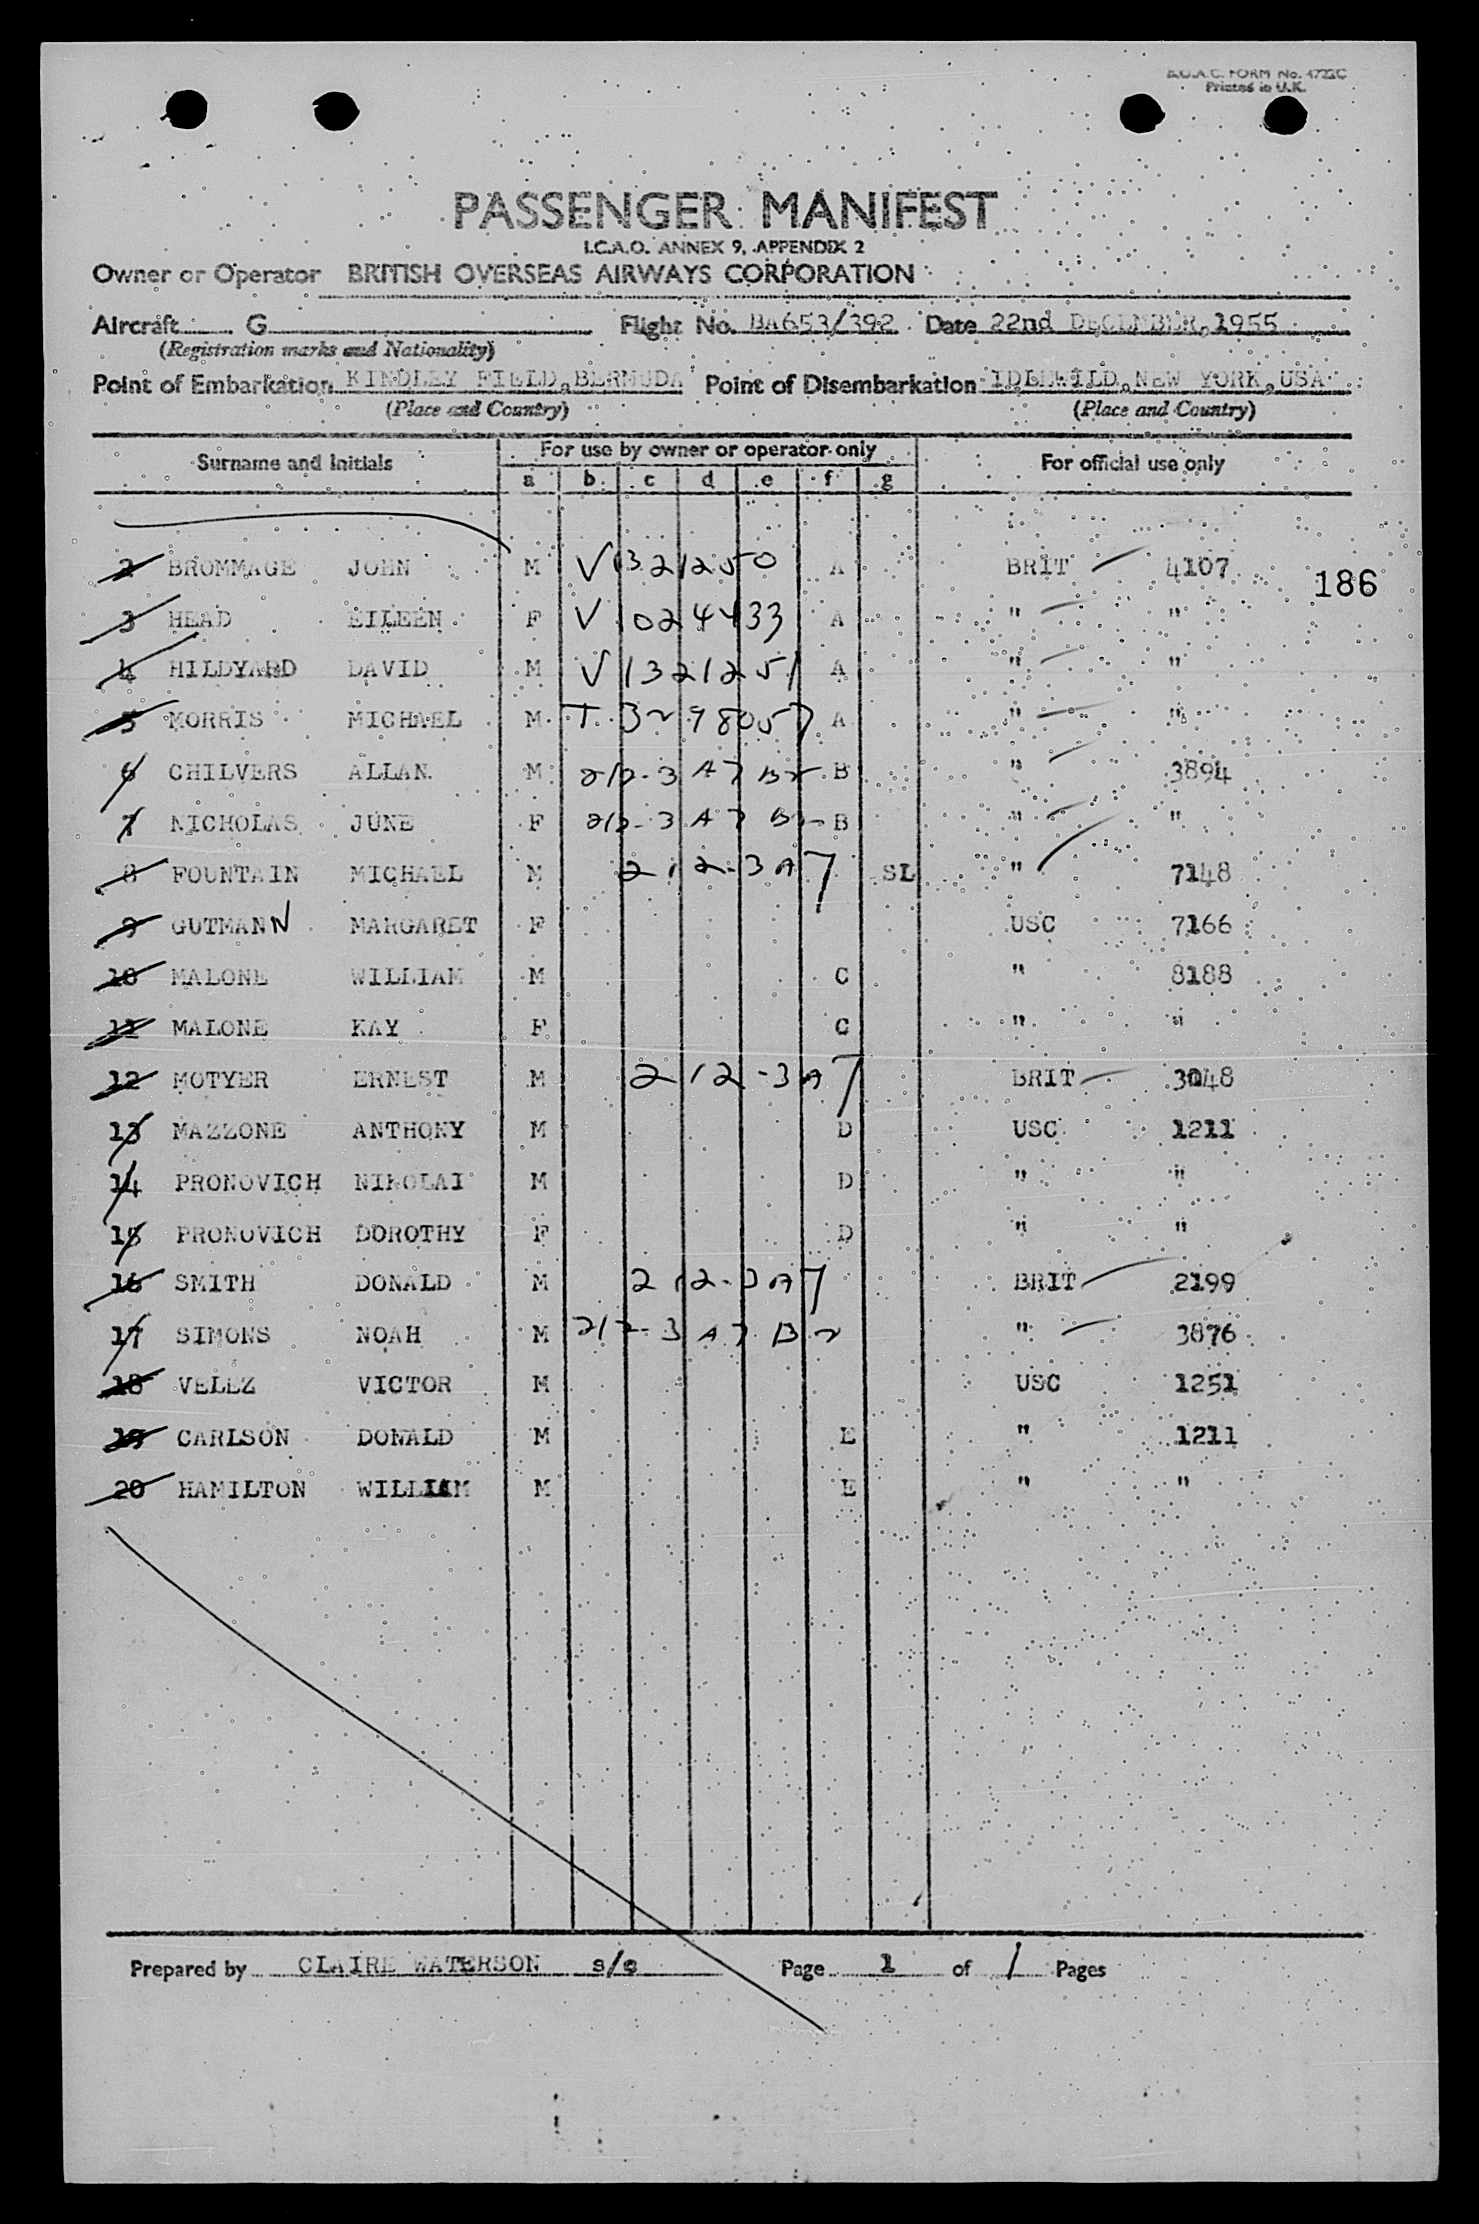 B.O.A.C. FORM No. 4722C
Printed in U.K.
PASSENGER MANIFEST
I.C.A.O. ANNEX 9, APPENDIX 2
Owner or Operator BRITISH OVERSEAS AIRWAYS CORPORATION
Aircraft G Flight No. BA653/392 Date 22nd DECEMBER, 1955
(Registration marks and Nationality)
Point of Embarkation KINDLEY FIELD, BERMUDA Point of Disembarkation IDLEWILD, NEW YORK, USA
(Place and Country) (Place and Country)
Surname and Initials For use by owner or operator only For official use only
a b c d e f g
2 BROMMAGE JOHN M V 1321250 A BRIT 4107
186
3 HEAD EILEEN F V 1024433 A " "
4 HILDYARD DAVID M V 1321251 A " "
5 MORRIS MICHAEL M T 3298057 A " "
6 CHILVERS ALLAN M 212-3 A7 B2 B " 3894
7 NICHOLAS JUNE F 212-3 A7 B2 B " "
8 FOUNTAIN MICHAEL M 212-3A7 SL " 7148
9 GUTMANN MARGARET F USC 7166
10 MALONE WILLIAM M C " 8188
11 MALONE KAY F C " "
12 MOTYER ERNEST M 212-3A7 BRIT 3048
13 MAZZONE ANTHONY M D USC 1211
14 PRONOVICH NIKOLAI M D " "
15 PRONOVICH DOROTHY F D " "
16 SMITH DONALD M 212-3A7 BRIT 2199
17 SIMONS NOAH M 212-3 A7 B2 " 3876
18 VELEZ VICTOR M USC 1251
19 CARLSON DONALD M E " 1211
20 HAMILTON WILLIAM M E " "
Prepared by CLAIRE WATERSON s/s Page 1 of 1 Pages